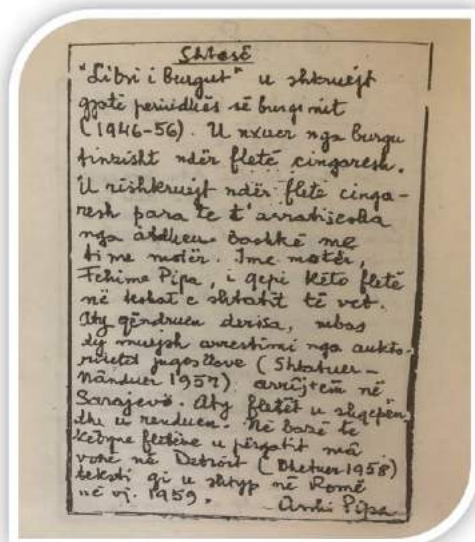 Shtesë
"Libri i Burgut" u shkruejt
gjatë periudhës së burgimit
(1946-56). U nxuer nga burgu
finzisht ndër fletë cingaresh.
U rishkruejt ndër fletë cinga-
resh para se t'arratisesha
nga atdheu bashkë me
time motër. Ime motër,
Fehime Pipa, i qepi këto fletë
në teshat e shtatit të vet.
Aty qëndruen derisa, mbas
dy muejsh arrestimi nga aukto-
ritetet jugosllave (Shtatuer-
Nânduer 1957) arrijtëm në
Sarajevë. Aty fletët u shqepën
dhe u renduen. Në bazë të
ketyne fletëve u përgatit mâ
vonë në Detroit (Dhetuer 1958)
teksti qi u shtyp në Romë
në vj. 1959.
Arshi Pipa